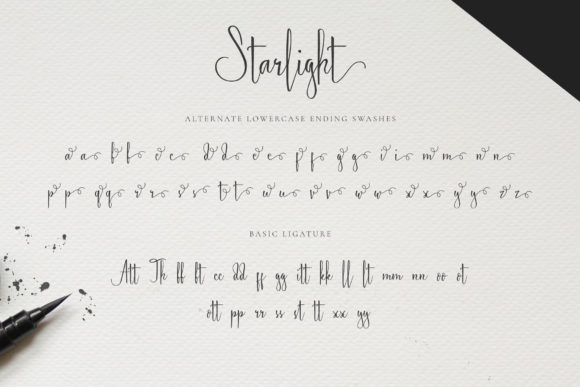 Starlight
ALTERNATE LOWERCASE ENDING SWASHES
a a b b c c d d e e f f g g i i m m n n
p p q q r r s s t t u u v v w w x x y y z z
BASIC LIGATURE
Att Th ff ft cc dd ff gg itt kk ll lt mm nn oo ot
ott pp rr ss st tt xx yy